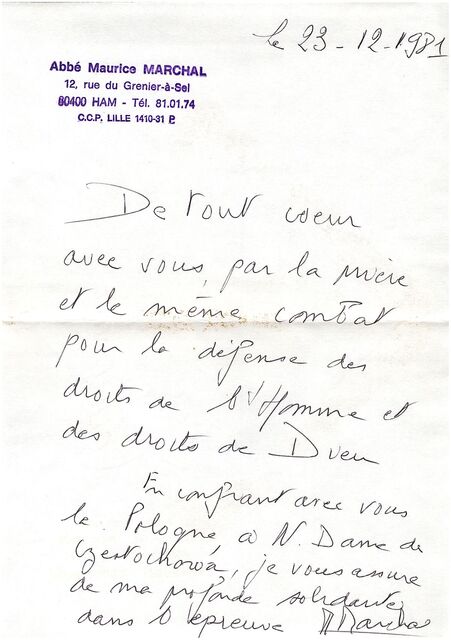 le 23-12-1981
Abbé Maurice MARCHAL
12, rue du Grenier-à-Sel
80400 HAM - Tél. 81.01.74
C.C.P. LILLE 1410-31 P
De tout coeur
avec vous, par la prière
et le même combat
pour la défense des
droits de l'Homme et
des droits de Dieu
En confiant avec vous
la Pologne à N. Dame de
Czestochowa, je vous assure
de ma profonde solidarité
dans l'épreuve MMarchal